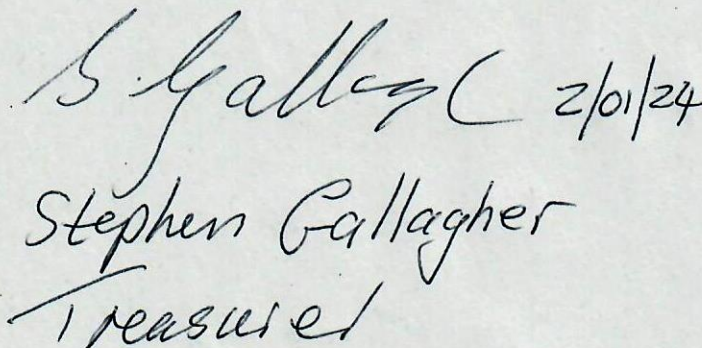 S. Gallagher 2/01/24
Stephen Gallagher
Treasurer